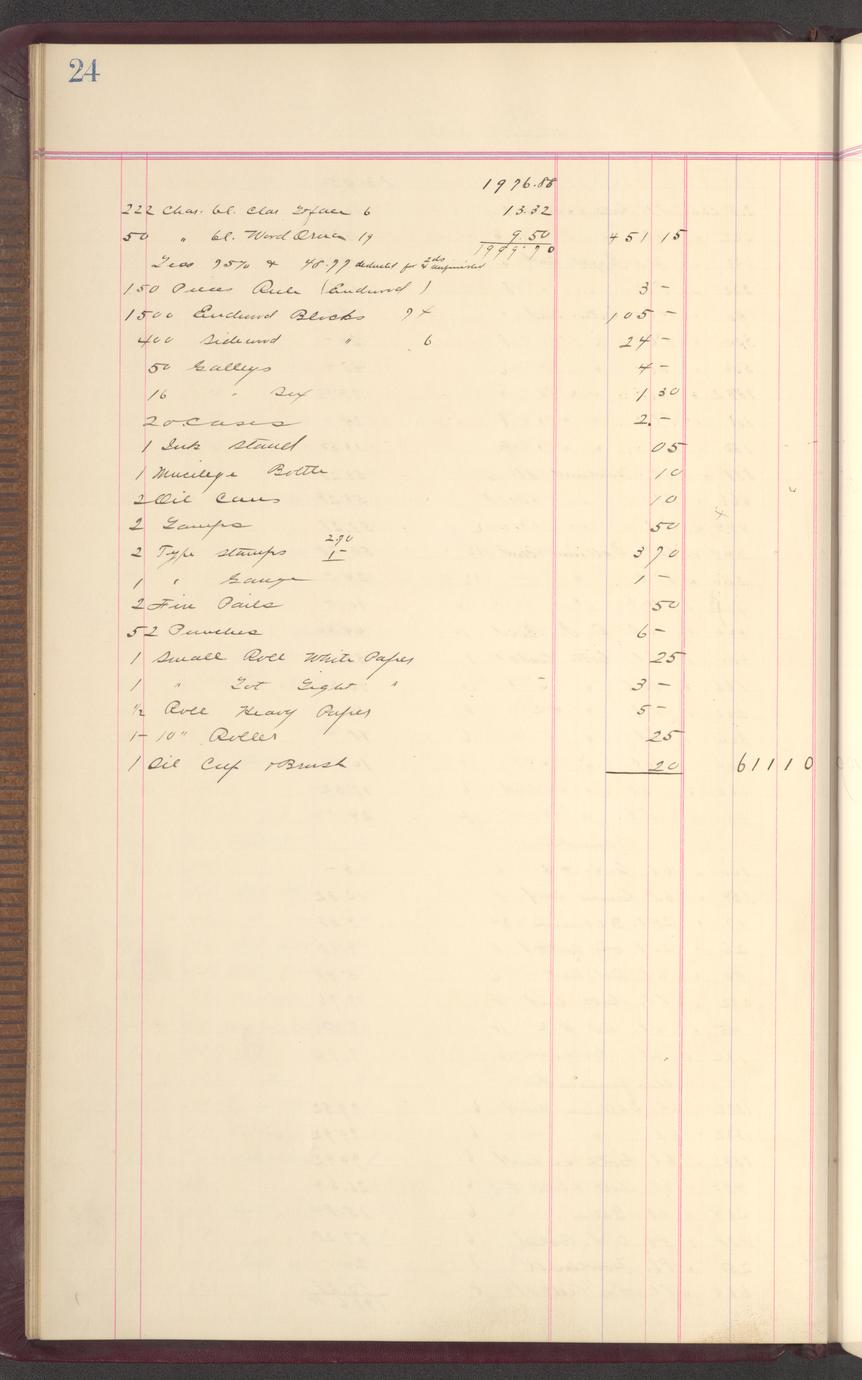 24
1976.88
222 Chas. bl. Clar. Eface 6 13.32
50 " bl. Word Orna 19 9.50 451 15
1999.70
Less 75% & 48.77 deducted for 2ds & unfinished
150 Pieces Rule (Endwood) 3 -
1500 Endwood Blocks 7¢ 105 -
400 Sidewood " 6 24 -
50 Galleys 4 -
16 " Sex 1 30
20 Cases 2. -
1 Ink Stand 05
1 Mucilege Bottle 10
2 Oil Cans 10
2 Lamps 50
2 Type Stamps 2.70 1- 3 70
1 " Gauge 1 -
2 Fire Pails 50
52 Punches 6 -
1 Small Roll White Paper 25
1 " Lot Light " 3 -
½ Roll Heavy Paper 5 -
1- 10" Roller 25
1 Oil Cup & Brush 20 611 10